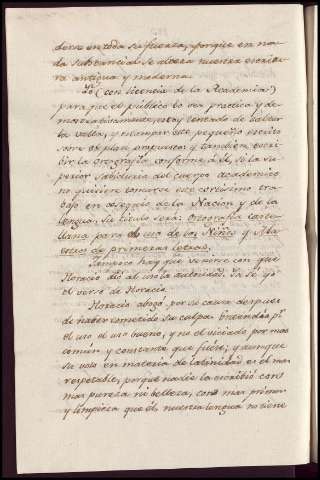 derse en toda su fuerza, porque en na-
da substancial se altera nuestra escritu-
ra antigua y moderna.
Yo (con licencia de la Academia)
para que el público lo vea practica y de-
mostrativamente, estoy tentado de soltar
la valla, y estampar este pequeño escrito
sobre el plan apuntado, y tambien escri-
bir la Ortografía conforme á él, si la su-
perior sabiduria del cuerpo académico
no quisiere tomarse este cortísimo tra-
bajo en obsequio de la Nacion y de la
lengua, su titulo será: Ortografía caste-
llana para el uso de los Niños y Ma-
estros de primeras letras.
Tampoco hay que venirse con que
Horacio dio al uso la autoridad. Ya sé yo
el verso de Horacio.
Horacio abogó por su causa despues
de haber cometido su culpa. Entendia pr.
el uso al uso bueno, y no al viciado por mas
comun y constante que fuese; y aunque
su voto en materia de latinidad es el mas
respetable, porque nadie la escribió con
mas pureza ni belleza, con mas primor
y limpieza que él, nuestra lengua no tiene